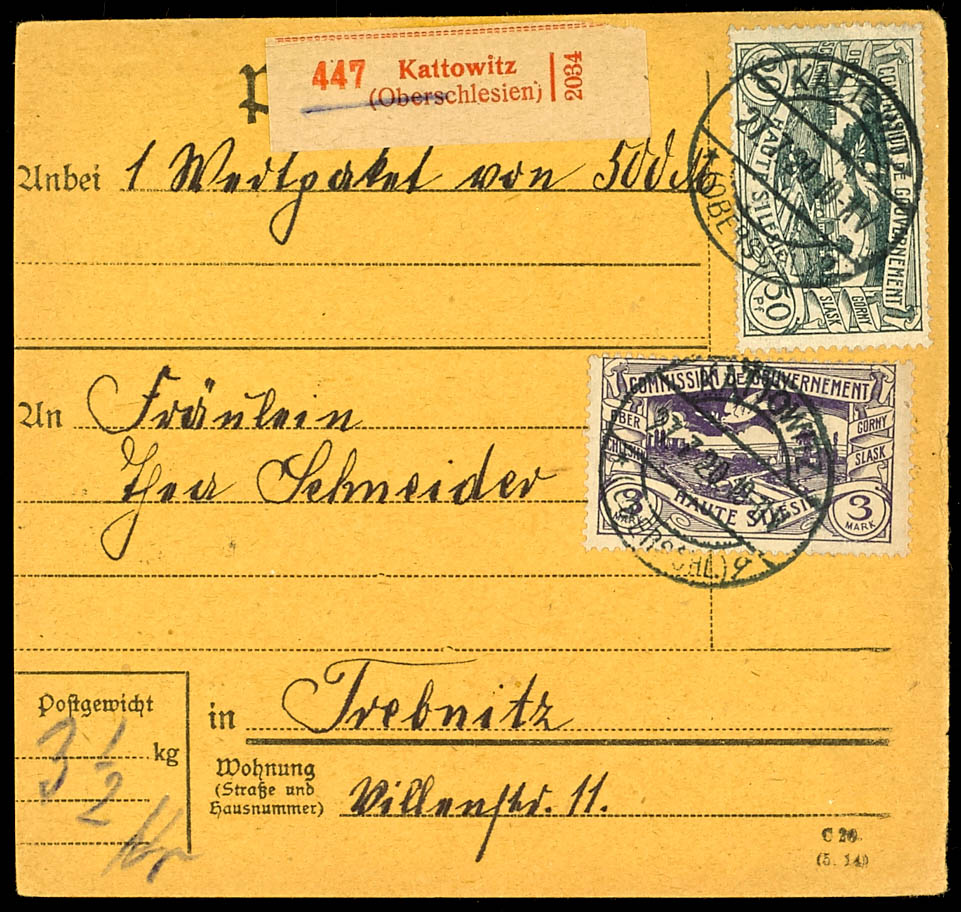 447 Kattowitz
(Oberschlesien)
2034
P
Anbei 1 Wertpaket von 500 M
COMMISSION DE GOUVERNEMENT
HAUTE SILESIE
50
Pf
GORNY
SLASK
KATTOWITZ
An Fräulein
Thea Schneider
COMMISSION DE GOUVERNEMENT
OBER
SCHLESIEN
GORNY
SLASK
HAUTE SILESIE
3
MARK
3
MARK
KATTOWITZ
(OBERSCHL.)
Postgewicht
3 1/2 kg
in Trebnitz
Wohnung
(Straße und
Hausnummer) Villenstr. 11.
C 20
(5. 14)